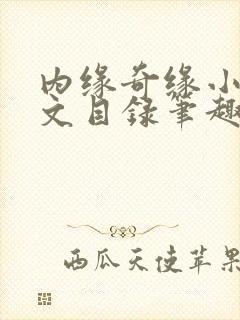 内缘奇缘小
文目录笔趣
西瓜天使苹果